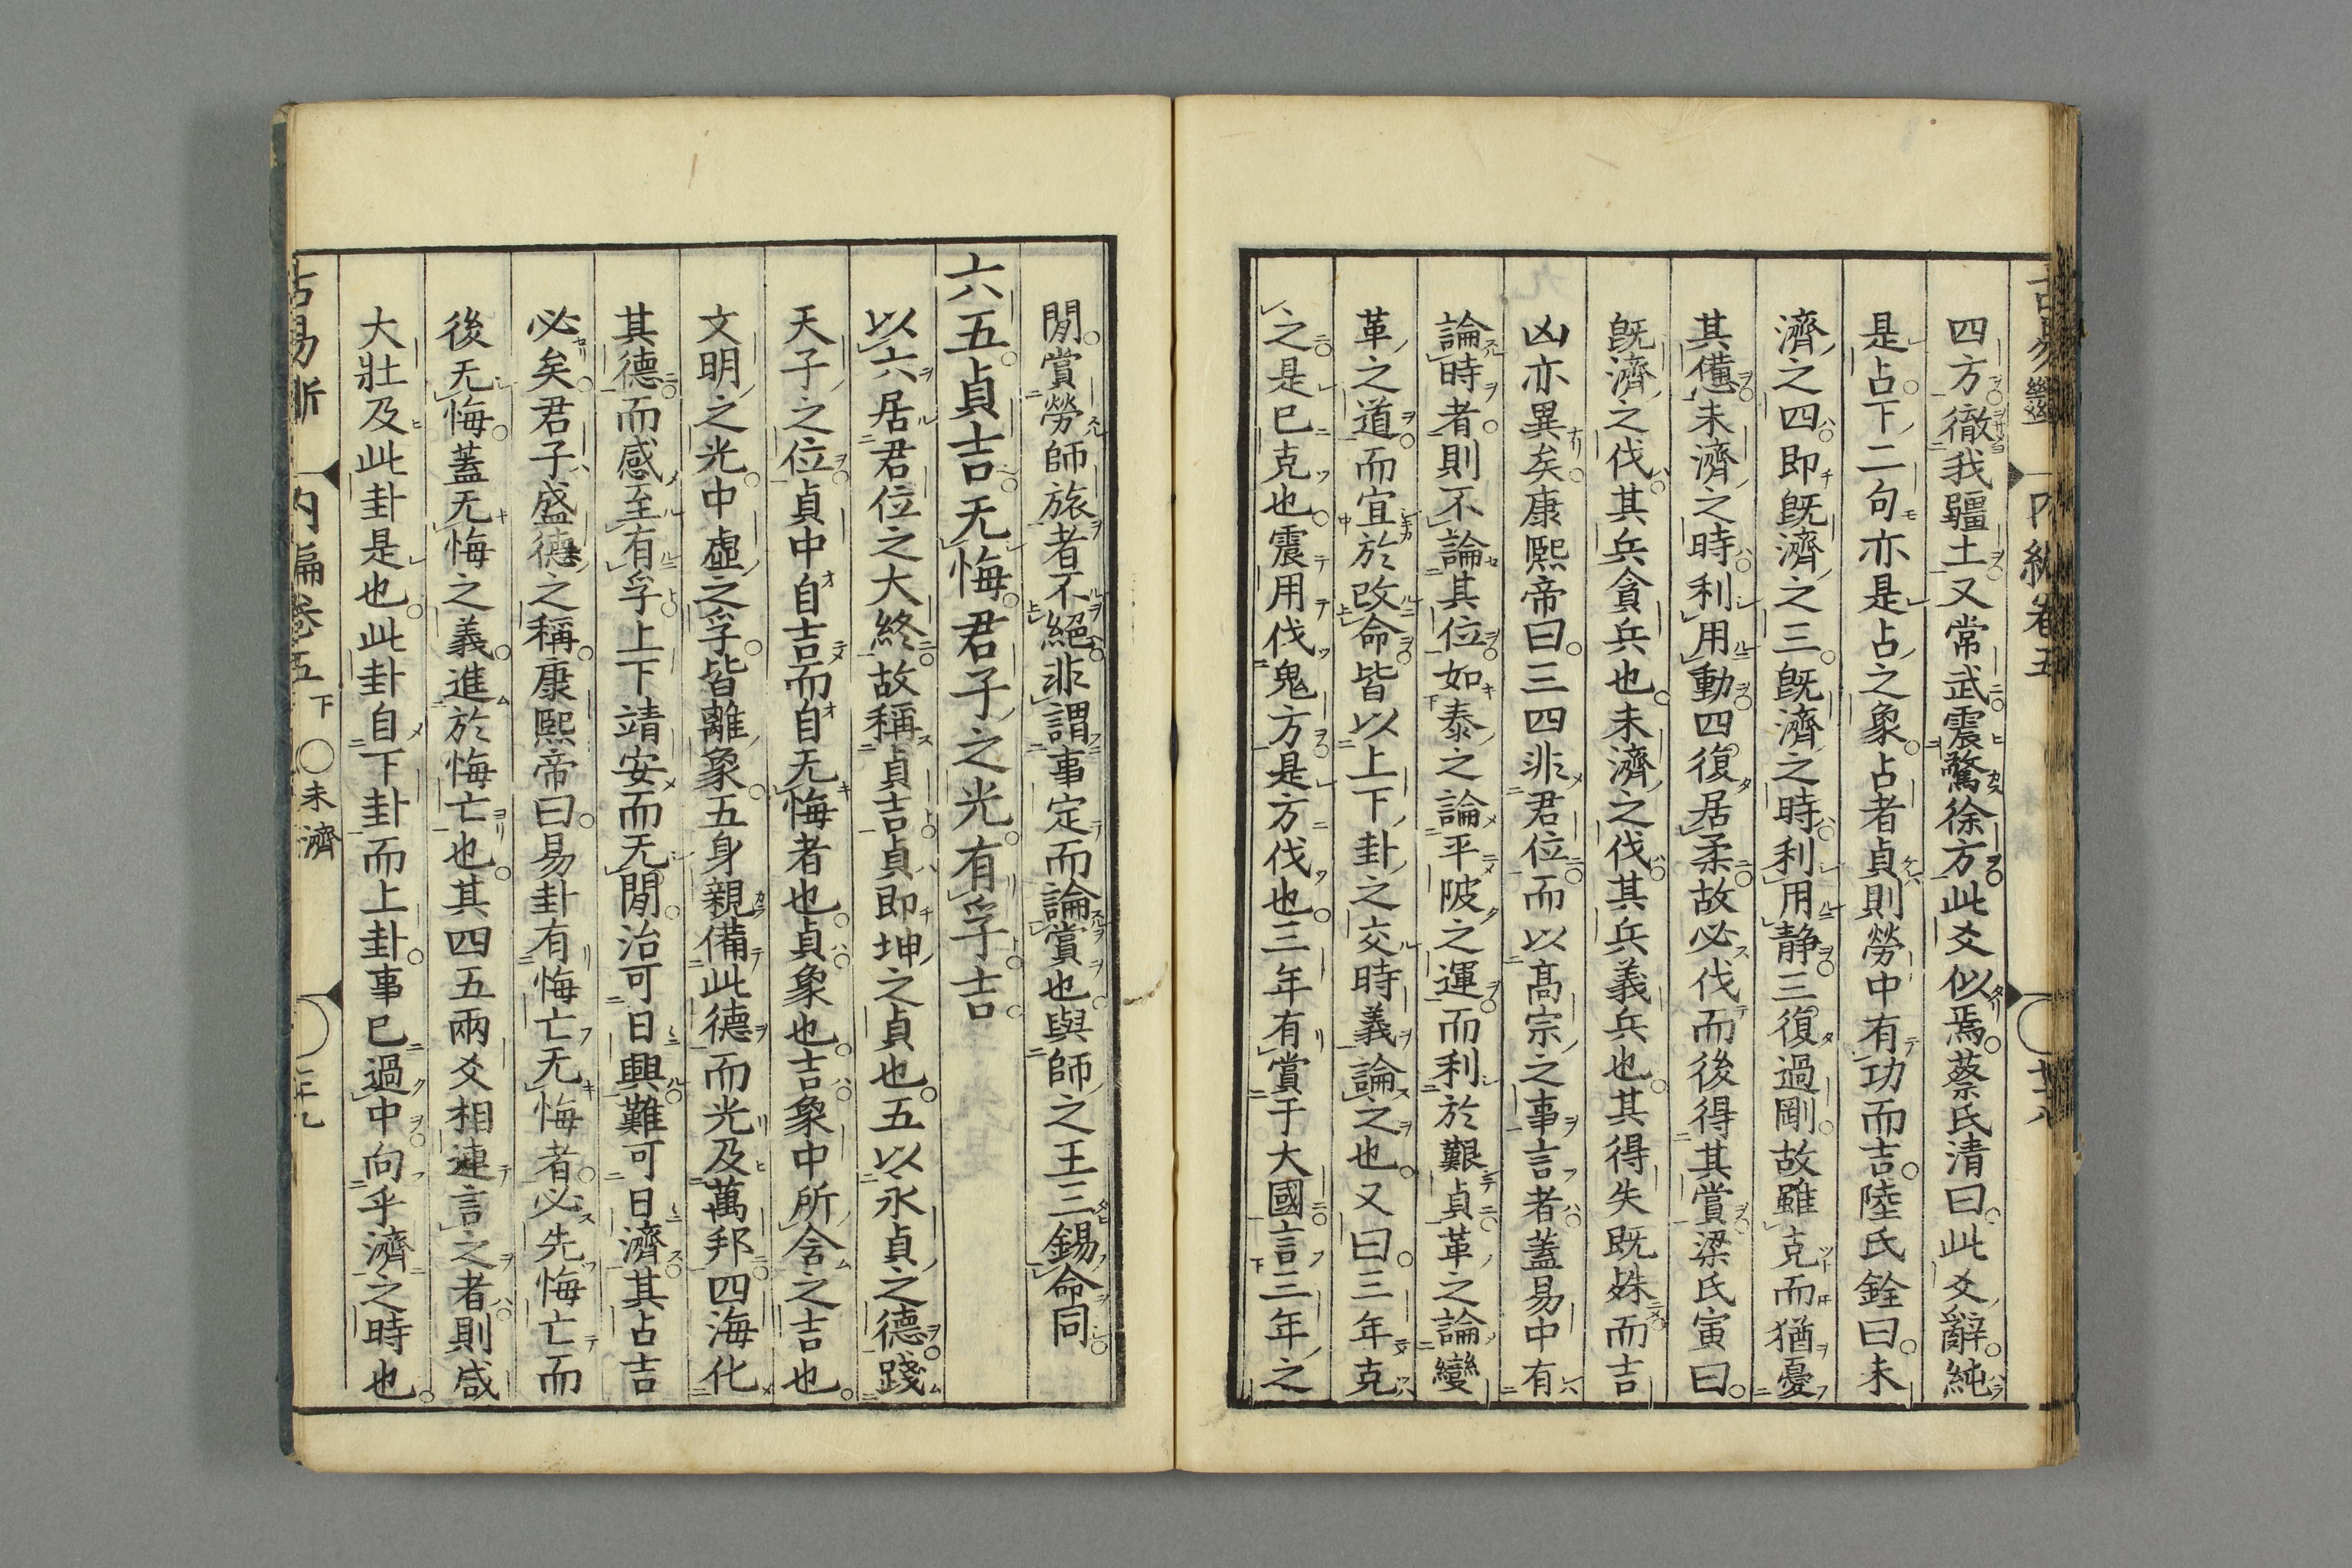 四方徹我疆土又常武震驚徐方此爻似焉蔡氏清曰此爻辭純
是占下二句亦是占之象占者貞則勞中有功而吉陸氏銓曰未
濟之四即旣濟之三旣濟之時利用静三復過剛故雖克而猶憂
其憊未濟之時利用動四復居柔故必伐而後得其賞梁氏寅曰
旣濟之伐其兵貪兵也未濟之伐其兵義兵也其得失既殊而吉
凶亦異矣康熙帝曰三四非君位而以髙宗之事言者蓋易中有
論時者則不論其位如泰之論平陂之運而利於艱貞革之論變
革之道而宜於改命皆以上下卦之交時義論之也又曰三年克
之是已克也震用伐鬼方是方伐也三年有賞于大國言三年之
閒賞勞師旅者不絕非謂事定而論賞也與師之王三錫命同
六五貞吉无悔君子之光有孚吉
以六居君位之大終故稱貞吉貞即坤之貞也五以永貞之德踐
天子之位貞中自吉而自无悔者也貞象也吉象中所含之吉也
文明之光中虛之孚皆離象五身親備此德而光及萬邦四海化
其德而感至有孚上下靖安而无閒治可日興難可日濟其占吉
必矣君子盛德之稱康熙帝曰易卦有悔亡无悔者必先悔亡而
後无悔蓋无悔之義進於悔亡也其四五兩爻相連言之者則咸
大壯及此卦是也此卦自下卦而上卦事已過中向乎濟之時也
易斷 内編卷五 下 〇未濟